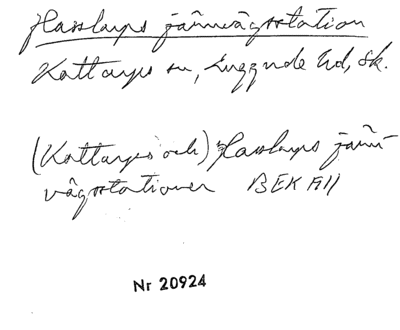 Hasslarps järnvägsstation
Kattarps sn, Luggude hd, Sk.
(Kattarps och) Hasslarps järn-
vägsstationer BEK AII
Nr 20924